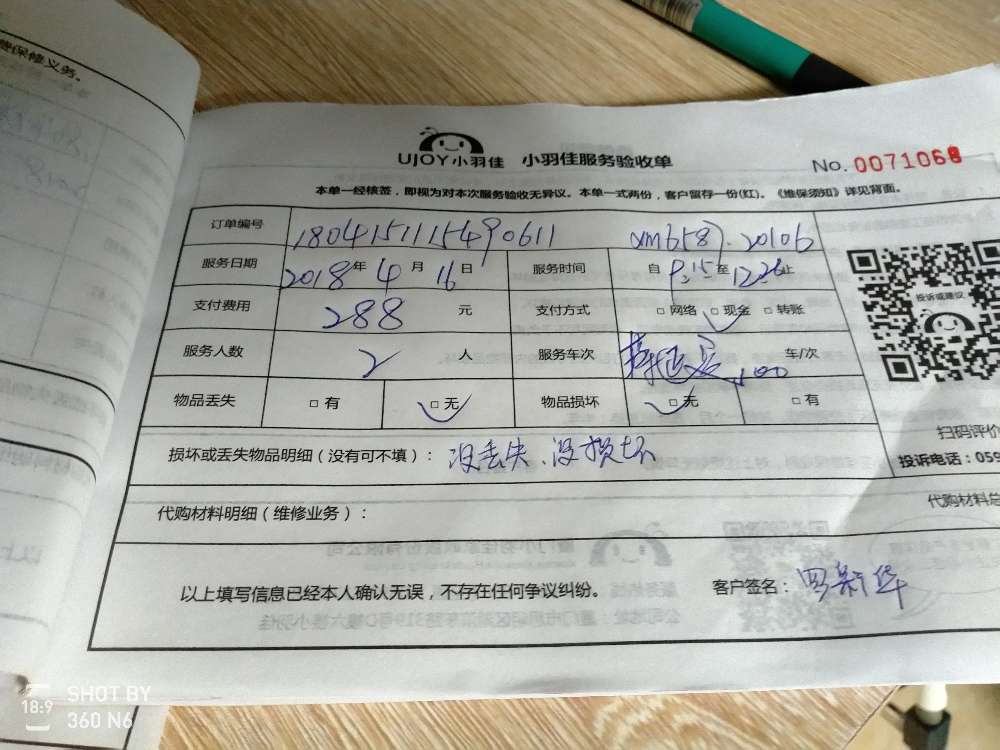 维保修义务。
UJOY小羽佳 小羽佳服务验收单
No. 0071068
本单一经核签，即视为对本次服务验收无异议。本单一式两份，客户留存一份(红)。《维保须知》详见背面。
订单编号 1804151115490611 xm6587.20106
服务日期 2018年4月16日 服务时间 自9:15至12:26止
支付费用 288 元 支付方式 □网络 □现金 □转账
服务人数 2 人 服务车次 100 车/次
物品丢失 □有 □无 物品损坏 □无 □有
投诉或建议
扫码评价
损坏或丢失物品明细（没有可不填）： 没丢失、没损坏
投诉电话：059
代购材料明细（维修业务）： 代购材料总
以上填写信息已经本人确认无误，不存在任何争议纠纷。 客户签名：罗新华
18:9 SHOT BY
360 N6